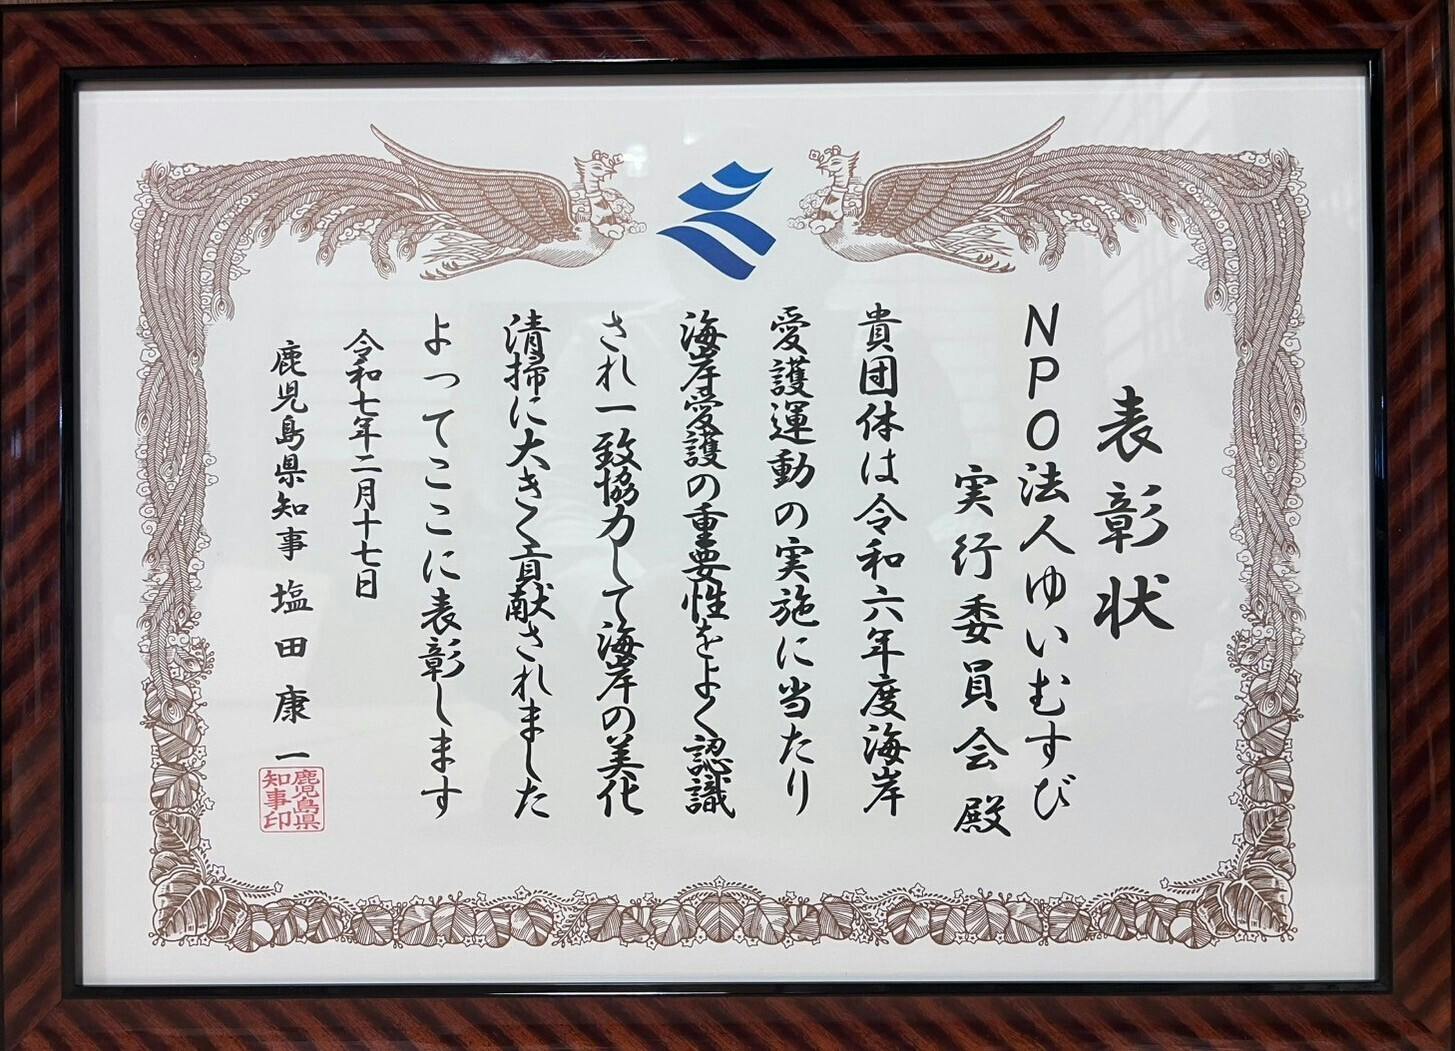 表彰状
NPO法人ゆいむすび
実行委員会 殿
貴団体は令和六年度海岸
愛護運動の実施に当たり
海岸愛護の重要性をよく認識
され一致協力して海岸の美化
清掃に大きく貢献されました
よってここに表彰します
令和七年二月十七日
鹿児島県知事 塩田康一
鹿児島県
知事印